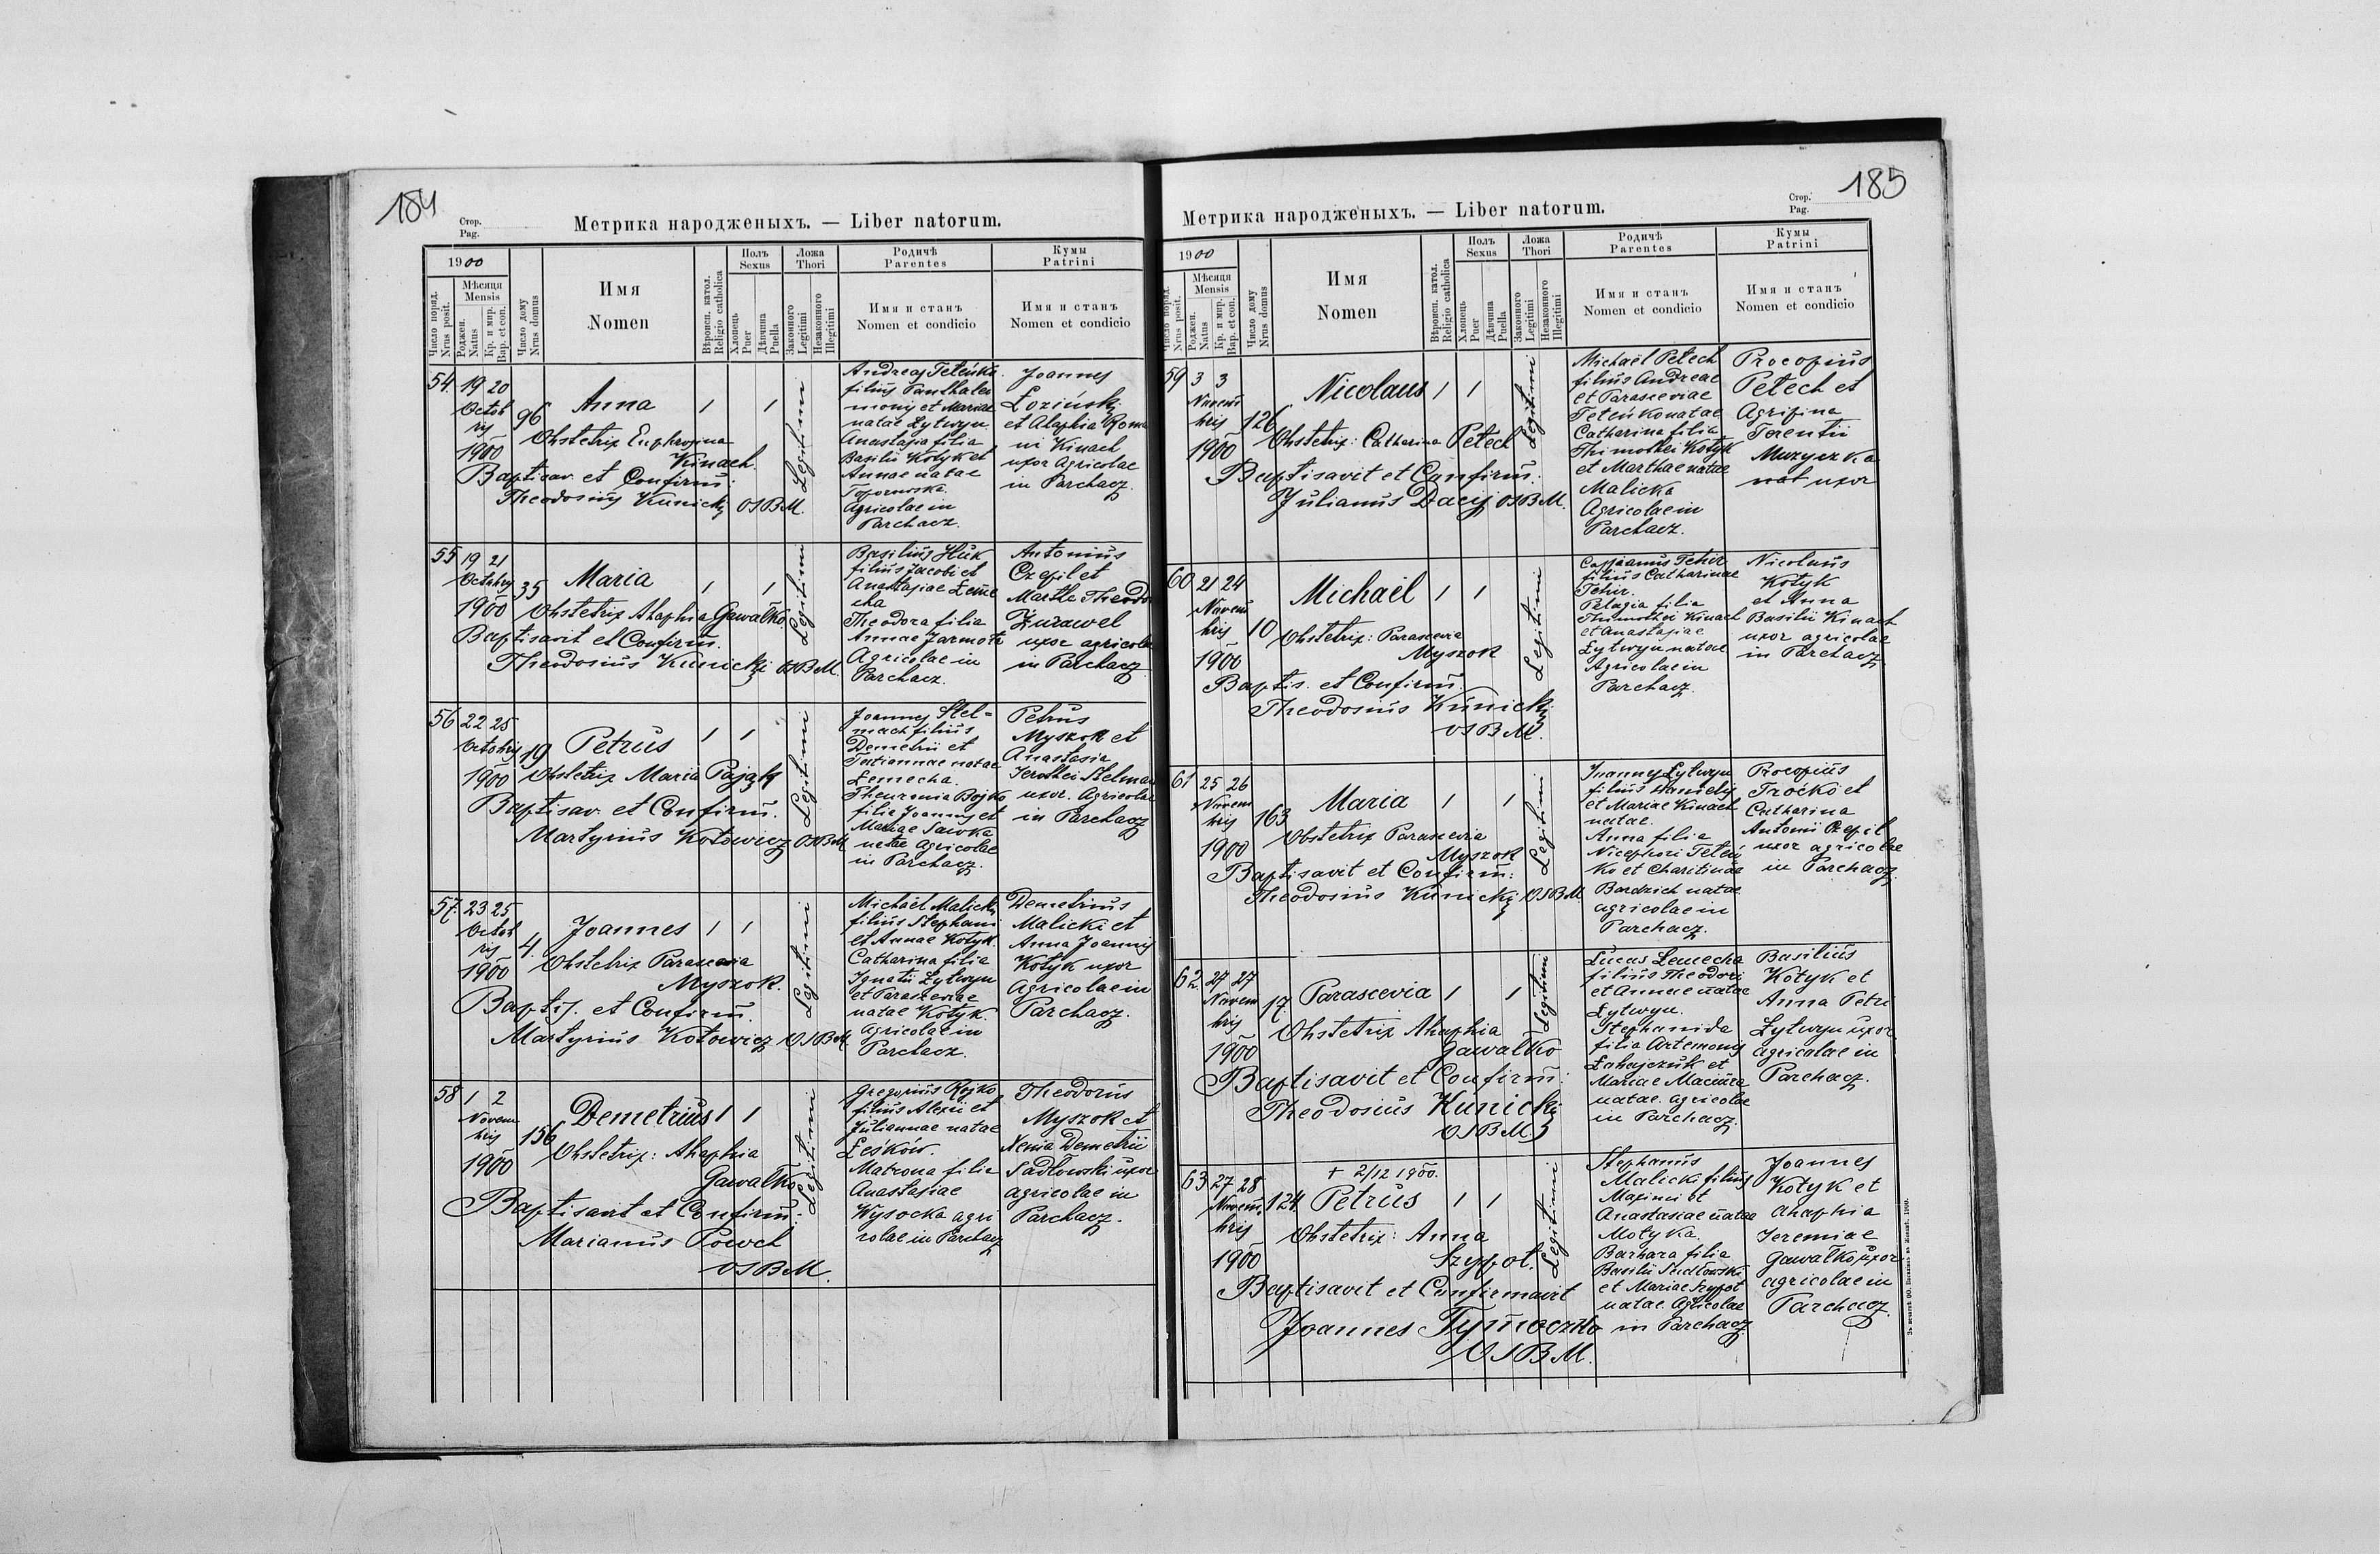 184
Стор.
Pag.
Метрика народженыхъ. — Liber natorum.
1900
Число поряд.
Nrus posit.
Мѣсяця
Mensis
Роджен.
Natus
Кр. и мир.
Bap. et con.
Число дому
Nrus domus
Имя
Nomen
Вѣроисп. катол.
Religio catholica
Полъ
Sexus
Хлопець
Puer
Дѣвчина
Puella
Ложа
Thori
Законного
Legitimi
Незаконного
Illegitimi
Родичѣ
Parentes
Имя и станъ
Nomen et condicio
Кумы
Patrini
Имя и станъ
Nomen et condicio
54. 19 20
Octob
ris
1900
96
Anna
Obstetrix Euphrosina
Kinach.
Baptisav. et Confirm:
Theodosius Kunicki OSBM.
Legitimi
Andreas Teteńko
filius Panthalei
monis et Mariae
natae Łytwyn
Anastasia filia
Basilii Kotyk et
Annae natae
Agricolae in
Parchacz.
Joannes
Łoziński
et Ahaphia Roma
ni Kinach
uxor Agricolae
in Parchacz.
55 19 21
Octobris
1900
35
Maria
Obstetrix Ahaphia Gawałko.
Baptisavit et Confirm.
Theodosius Kunicki OSBM.
Legitimi
Basilius Huk
filius Jacobi et
Anastasiae Łeme
cha
Theodora filia
Annae
Agricolae in
Parchacz.
Antonius
Czepil et
Martha Theodo
Żurawel
uxor agricolae
in Parchacz
56 22 25
Octobris
1900
19
Petrus
Obstetrix Maria Pająk
Baptisav. et Confirm.
Martyrius Kotowicz OSBM
Legitimi
Joannes Stel=
mach filius
Demetrii et
Tatiannae natae
Łemecha.
Bojko
filia Joannis et
Mariae Sawka
natae Agricolae
in Parchacz.
Petrus
Myszok et
Anastasia
Jerothei Stelmach
uxor. Agricolae
in Parchacz
57. 23 25
Octob
ris
1900
4.
Joannes
Obstetrix Parascevia
Myszok.
Baptis. et Confirm.
Martyrius Kotowicz OSBM.
Legitimi
Michael Malicki
filius Stephani
et Annae Kotyk.
Catharina filia
Ignatii Łytwyn
et Parasceviae
natae Kotyk.
Agricolae in
Parchacz.
Demetrius
Malicki et
Anna Joannis
Kotyk uxor
Agricolae in
Parchacz.
58 1 2
Novem
bris
1900
156
Demetrius
Obstetrix: Ahaphia
Gawałko
Baptisavit et Confirm:
Marianus Powch
OSBM.
Legitimi
Gregorius Bojko
filius Alexii et
Juliannae natae
Leśków.
Matrona filia
Anastasiae
Wysocka agri
colae in Parchacz
Theodorus
Myszok et
Xenia Demetrii
Sadłowski uxor
agricolae in
Parchacz.
185
Стор.
Pag.
Метрика народженыхъ. — Liber natorum.
1900
Число поряд.
Nrus posit.
Мѣсяця
Mensis
Роджен.
Natus
Кр. и мир.
Bap. et con.
Число дому
Nrus domus
Имя
Nomen
Вѣроисп. катол.
Religio catholica
Полъ
Sexus
Хлопець
Puer
Дѣвчина
Puella
Ложа
Thori
Законного
Legitimi
Незаконного
Illegitimi
Родичѣ
Parentes
Имя и станъ
Nomen et condicio
Кумы
Patrini
Имя и станъ
Nomen et condicio
59 3 3
Novem
bris
1900
126
Nicolaus
Obstetrix: Catharina Petech
Baptisavit et Confirm:
Julianus Dacij OSBM.
Legitimi
Michael Petech
filius Andreae
et Parasceviae
Teteńko natae
Catharina filia
Thimothei Kotyk
et Marthae natae
Malicka
Agricolae in
Parchacz.
Procopius
Petech et
Agripina
Terentii
Muzyczka
nat uxor
60 21 24
Novem
bris
1900
10
Michaël
Obstetrix: Parascevia
Myszok
Baptis. et Confirm.
Theodosius Kunicki
OSBM.
Legitimi
filius Catharinae
Pelagia filia
Thimothei Kinach
et Anastasiae
Łytwyn natae
Agricolae in
Parchacz.
Nicolaus
Kotyk
et Anna
Basilii Kinach
uxor agricolae
in Parchacz
61 25 26
Novem
bris
1900
163
Maria
Obstetrix Parascevia
Myszok
Baptisavit et Confirm:
Theodosius Kunicki OSBM
Legitimi
Joannes Łytwyn
filius Danielis
et Mariae Kinach
natae.
Anna filia
Nicephori Teteń
ko et Charitinae
Bardzich natae
agricolae in
Parchacz.
Procopius
Troćko et
Catharina
Antonii Czepil
uxor agricolae
in Parchacz.
62. 27 27
Novem
bris
1900
17.
Parascevia
Obstetrix Ahaphia
Gawałko
Baptisavit et Confirm:
Theodosius Kunicki
OSBM.
Legitimi
Lucas Łemecha
filius Theodori
et Annae natae
Łytwyn.
Stephanida
filia Artemonis
Łahajczuk et
Mariae Maciura
natae. agricolae
in Parchacz.
Basilius
Kotyk et
Anna Petri
Łytwyn uxor
agricolae in
Parchacz.
63 27 28
Novem.
bris
1900
124
+ 2/12 1900.
Petrus
Obstetrix: Anna
Szypot.
Baptisavit et Confirmavit
Joannes Tymoczko
OSBM.
Legitimi
Stephanus
Malicki filius
Maximi et
Anastasiae natae
Motyka.
Barbara filia
Basilii Sadłowski
et Mariae Szypot
natae. Agricolae
in Parchacz
Joannes
Kotyk et
Ahaphia
Jeremiae
Gawałko uxor
agricolae in
Parchacz.